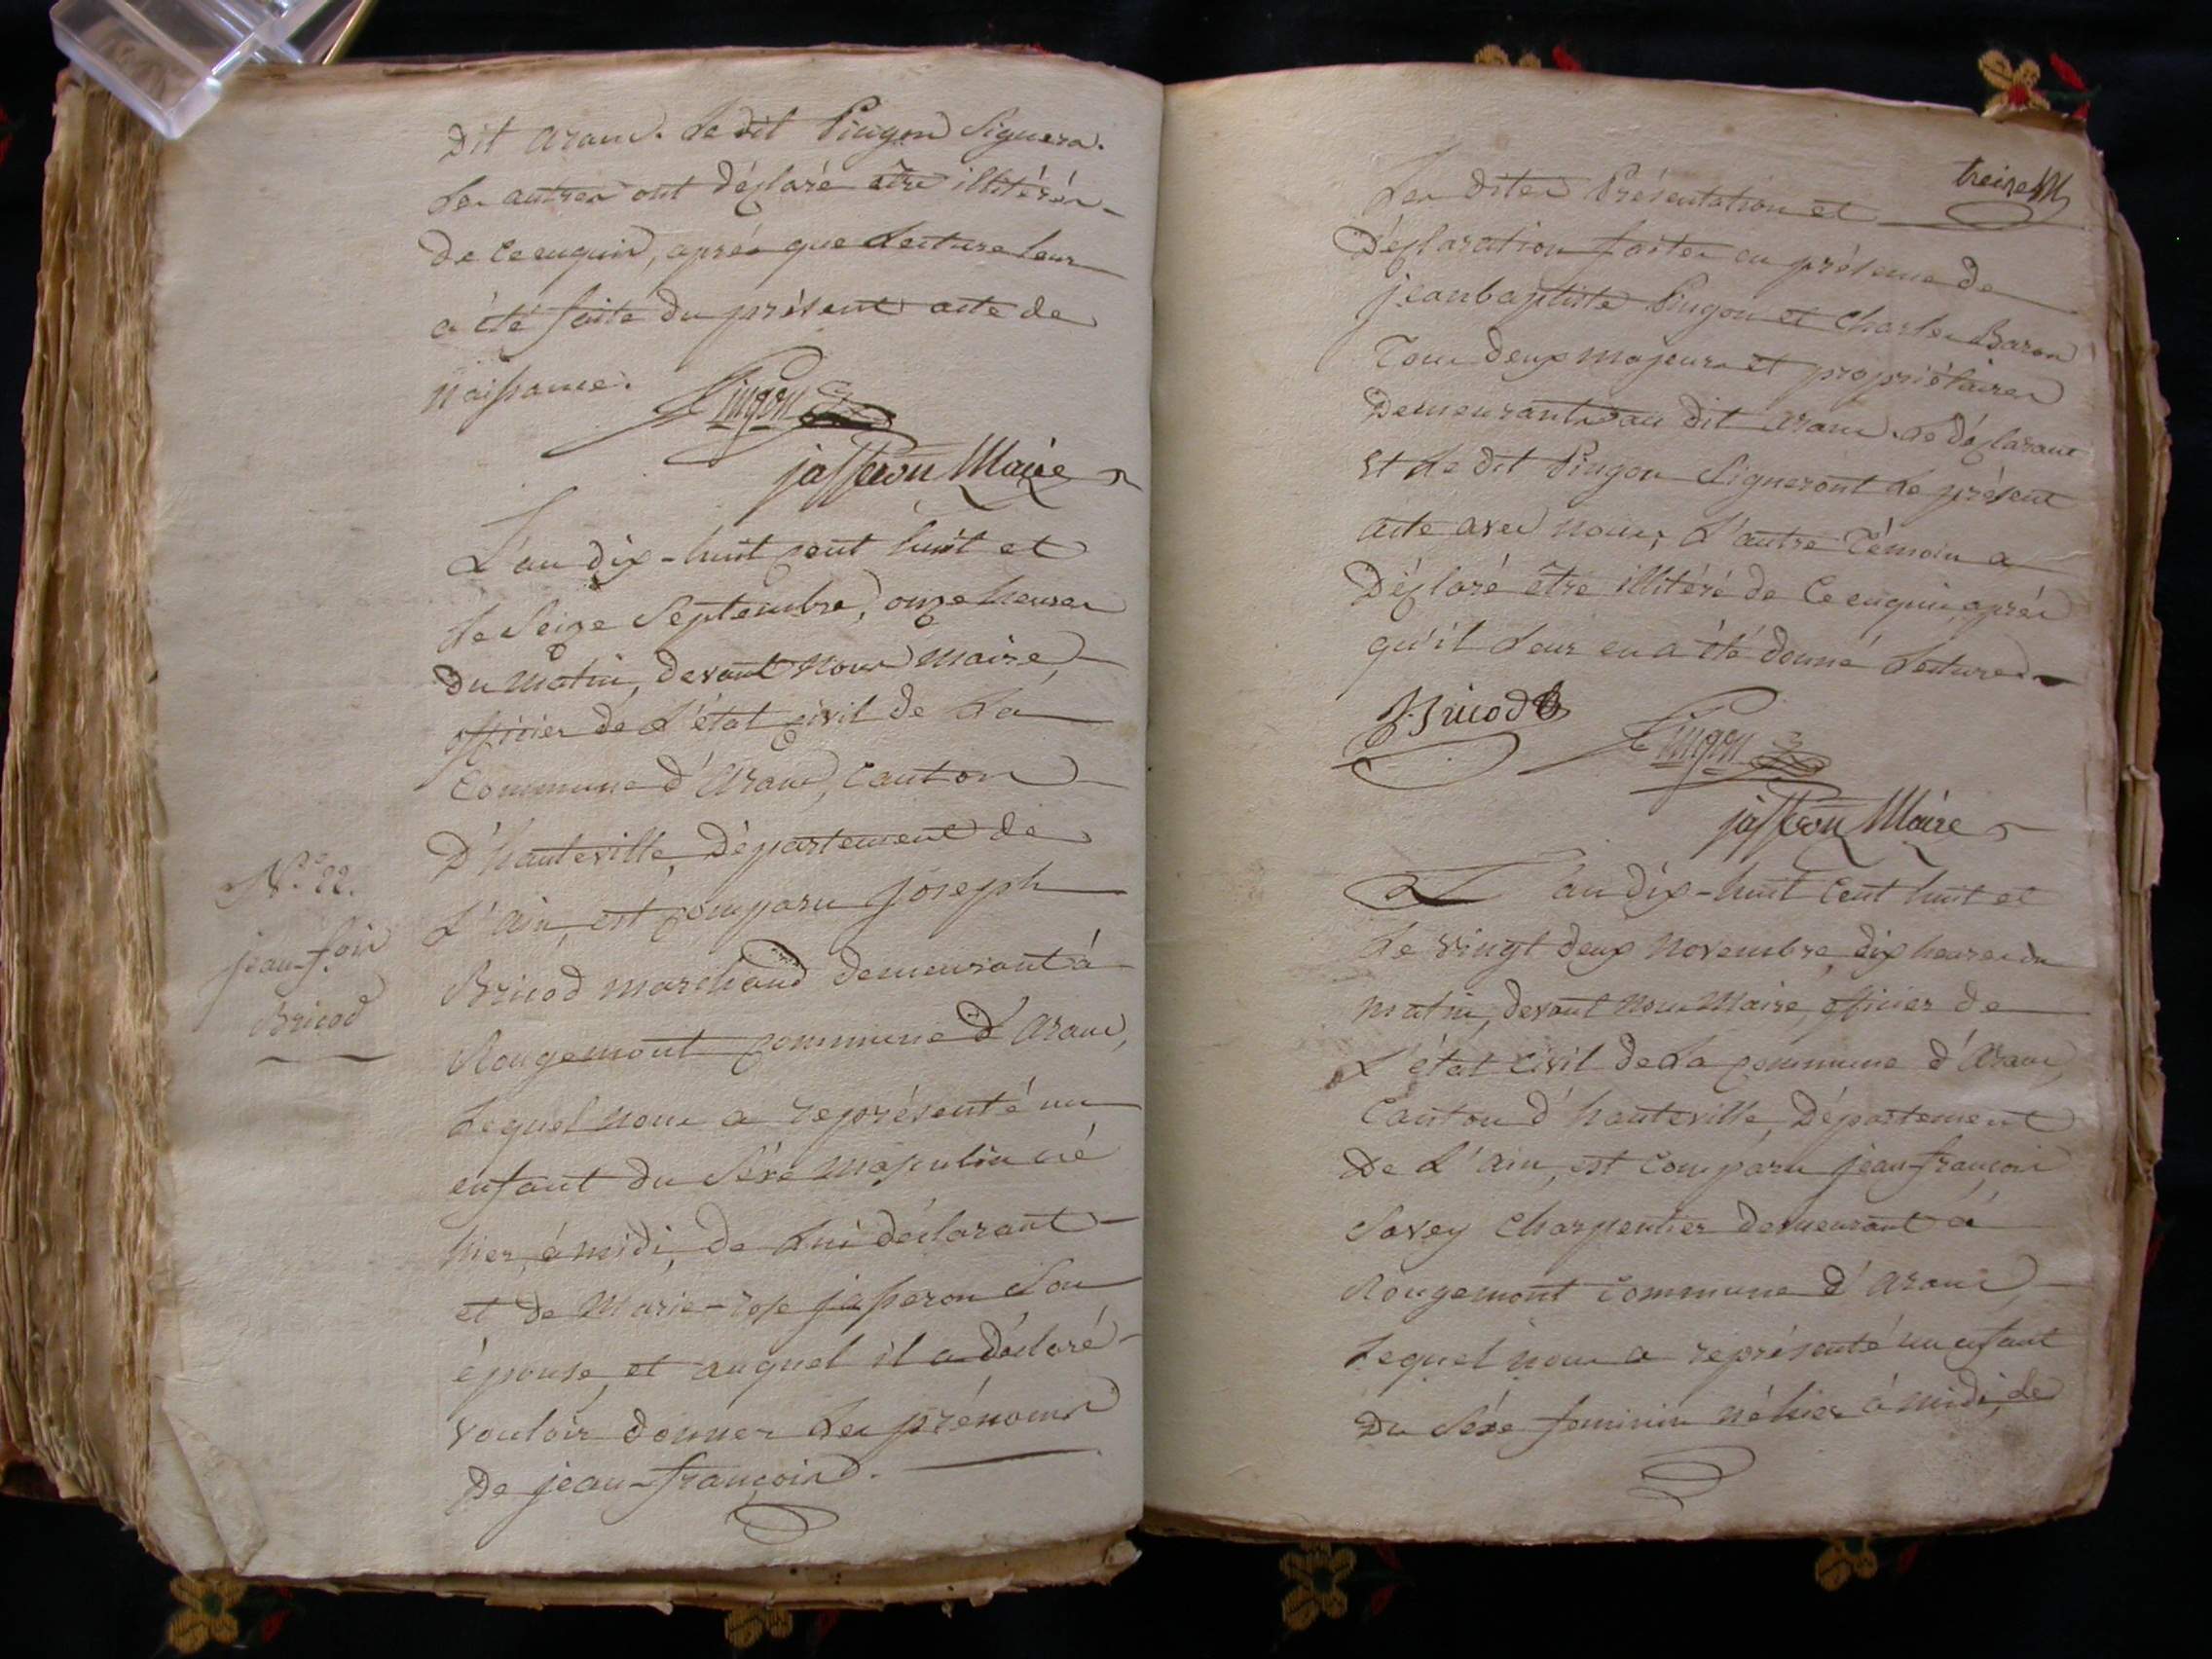 Dit aranc. Le dit Pingon Signera.
Les autres ont Déclaré être illitérés
de ce enquis, après que Lecture leur
a été faite du présent acte de
Naissance.
Pingon
jasseron Maire
L'an dix-huit cent huit et
le Seize Septembre, onze heures
du matin, devant Nous Maire,
officier de L'état civil de La
Commune d'Aranc, Canton
D'hauteville, Département de
L'ain, est comparu Joseph
Bricod marchand demeurant à
Rougemont commune d'Aranc,
Lequel nous a représenté un
enfant du Séxe masculin né
hier, à midi, de Lui déclarant
et de Marie-rose jasseron Son
épouse, et auquel il a déclaré
vouloir donner Les prénoms
De jean-françois.
N.º 22.
jean-fois
Bricod
treize
Les dites Présentation et
Déclaration faites en présence de
jeanbaptiste Pingon et Charles Baron
Tous deux majeurs et propriétaires
Demeurants au dit aranc. Le déclarant
et Le dit Pingon Signeront Le présent
acte avec nous, L'autre Témoin a
Déclaré être illitéré de Ce enquis, après
qu'il Leur en a été donné Lecture
J. Bricod
Pingon
jasseron Maire
L'an dix-huit Cent huit et
Le vingt deux Novembre, dix heures du
matin, devant Nous Maire, officier de
L'état Civil de La commune d'Aranc,
Canton d'hauteville, Département
De L'Ain, est Comparu jean-françois
Savey Charpentier demeurant à
Rougemont Commune d'Aranc,
Lequel nous a représenté un enfant
Du Séxe feminin né hier à midi, de